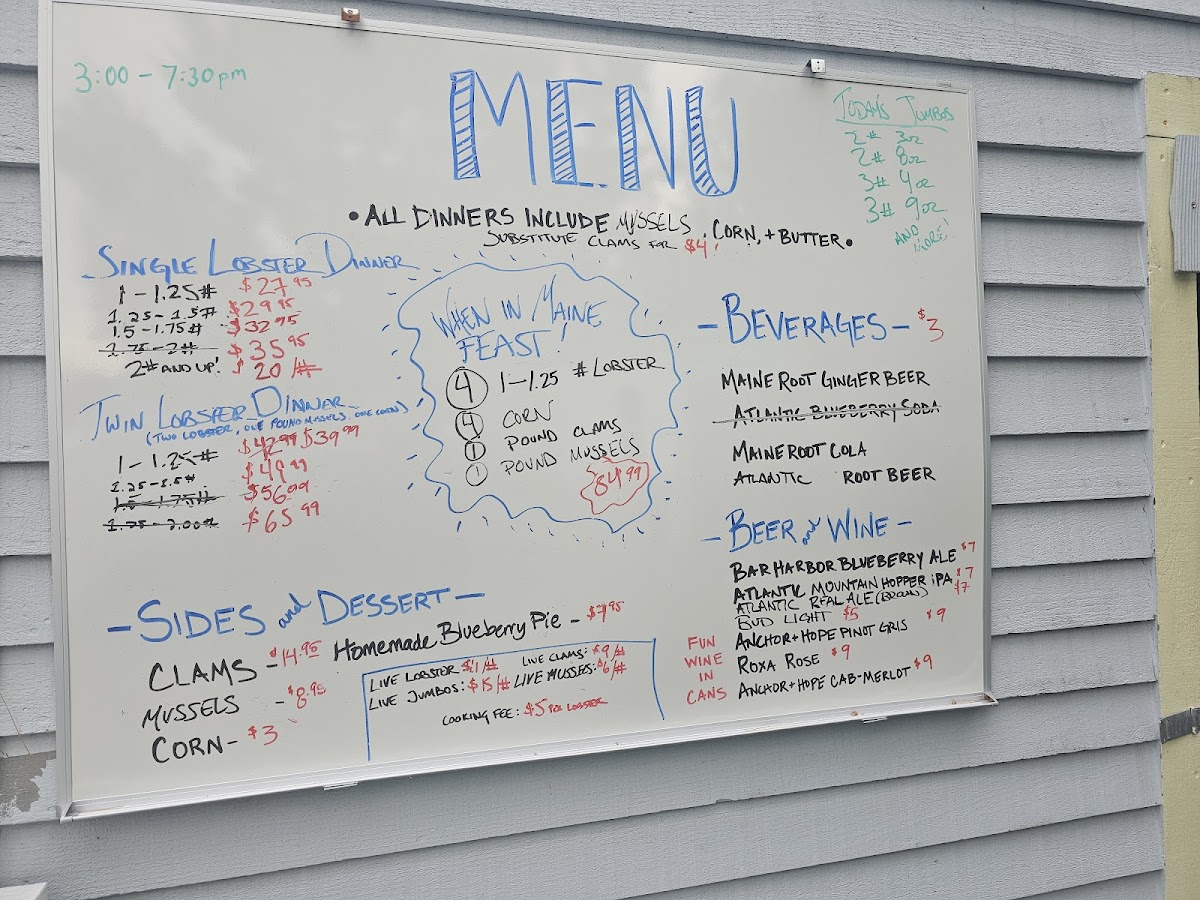 3:00 - 7:30pm
MENU
TODAY'S JUMBOS
2# 3oz
2# 8oz
3# 4oz
3# 9oz
AND MORE!
• ALL DINNERS INCLUDE MUSSELS, CORN, + BUTTER •
SUBSTITUTE CLAMS FOR $4!
SINGLE LOBSTER DINNER
1 - 1.25# $27.95
1.25 - 1.5# $29.95
1.5 - 1.75# $32.95
1.75 - 2# $35.95
2# AND UP! $20/#
TWIN LOBSTER DINNER
(TWO LOBSTER, ONE POUND MUSSELS, ONE CORN)
1 - 1.25# $42.99 $39.99
1.25 - 1.5# $49.99
1.5 - 1.75# $56.99
1.75 - 2.00# $65.99
WHEN IN MAINE
FEAST!
4 1 - 1.25 # LOBSTER
4 CORN
1 POUND CLAMS
1 POUND MUSSELS
84.99
- BEVERAGES - $3
MAINE ROOT GINGER BEER
ATLANTIC BLUEBERRY SODA
MAINE ROOT COLA
ATLANTIC ROOT BEER
- BEER and WINE -
BAR HARBOR BLUEBERRY ALE $7
ATLANTIC MOUNTAIN HOPPER iPA $7
ATLANTIC REAL ALE (BROWN) $7
BUD LIGHT $5
FUN
WINE
IN
CANS
ANCHOR + HOPE PINOT GRIS $9
ROXA ROSE $9
ANCHOR + HOPE CAB-MERLOT $9
- SIDES and DESSERT -
CLAMS - $14.95
MUSSELS - $8.95
CORN - $3
HOMEMADE BLUEBERRY PIE - $7.95
LIVE LOBSTER: $11/# LIVE CLAMS: $9/#
LIVE JUMBOS: $15/# LIVE MUSSES: $6/#
COOKING FEE: $5 PER LOBSTER